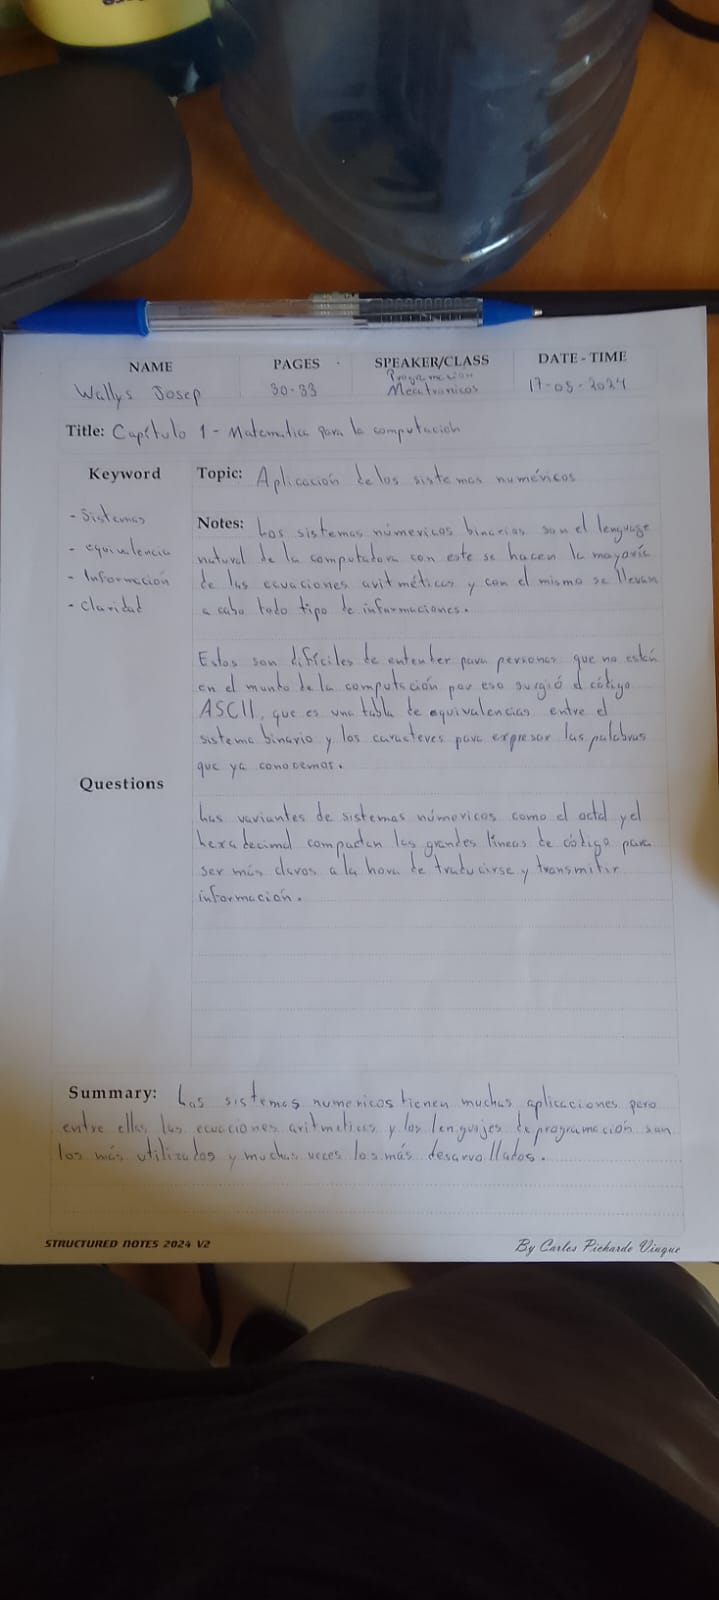 NAME PAGES SPEAKER/CLASS DATE - TIME
Wallys Josep 30-33 Programacion Mecatronicos 17-05-2024
Title: Capítulo 1 - Matematica para la computación
Keyword
- Sistemas
- equivalencia
- Información
- Claridad
Topic: Aplicación de los sistemas numéricos
Notes: Los sistemas númericos binarios son el lenguage
natural de la computadora con este se hacen la mayoría
de las ecuaciones aritméticos y con el mismo se llevan
a cabo todo tipo de informaciones.
Estos son difíciles de entender para personas que no están
en el mundo de la computación por eso surgió el código
ASCII, que es una tabla de equivalencias entre el
sistema binario y los caracteres para expresar las palabras
que ya conocemos.
Questions
Las variantes de sistemas númericos como el octal y el
hexadecimal compactan las grandes líneas de código para
ser más claros a la hora de traducirse y transmitir
información.
Summary: Los sistemas numericos tienen muchas aplicaciones pero
entre ellas las ecuaciones aritmeticas y los lenguajes de programacion son
los más utilizados y muchas veces los más desarrollados.
STRUCTURED NOTES 2024 V2 By Carlos Pichardo Viuque